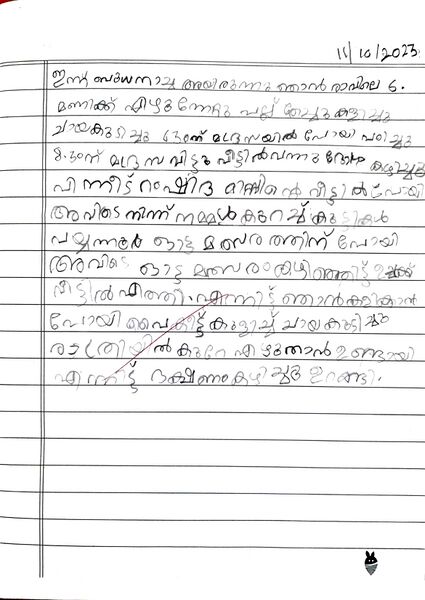 11/10/2023
ഇന്ന് ബുധനാഴ്ച ആയിരുന്നു ഞാൻ രാവിലെ 6.
മണിക്ക് എഴുന്നേറ്റു പല്ല് തേച്ചു കുളിച്ചു
ചായകുടിച്ചു 6:30ന് മദ്രസയിൽ പോയി പഠിച്ചു
8.30ന് മദ്രസ വിട്ടു വീട്ടിൽ വന്നു കഴിച്ചു
പിന്നീട് റംഷിദ മിസ്സിന്റെ വീട്ടിൽ പോയി
അവിടെ നിന്ന് നമ്മൾ കുറച്ച് കുട്ടികൾ
ഓട്ട മത്സരത്തിന് പോയി
അവിടെ ഓട്ട മത്സരം കഴിഞ്ഞിട്ട് ഉച്ചക്ക്
വീട്ടിൽ എത്തി. എന്നിട്ട് ഞാൻ കളിക്കാൻ
പോയി വൈകീട്ട് കുളിച്ച് ചായ കുടിച്ചു
രാത്രിയിൽ കുറേ എഴുതാൻ ഉണ്ടായി
എന്നിട്ട് ഭക്ഷണം കഴിച്ചു ഉറങ്ങി.